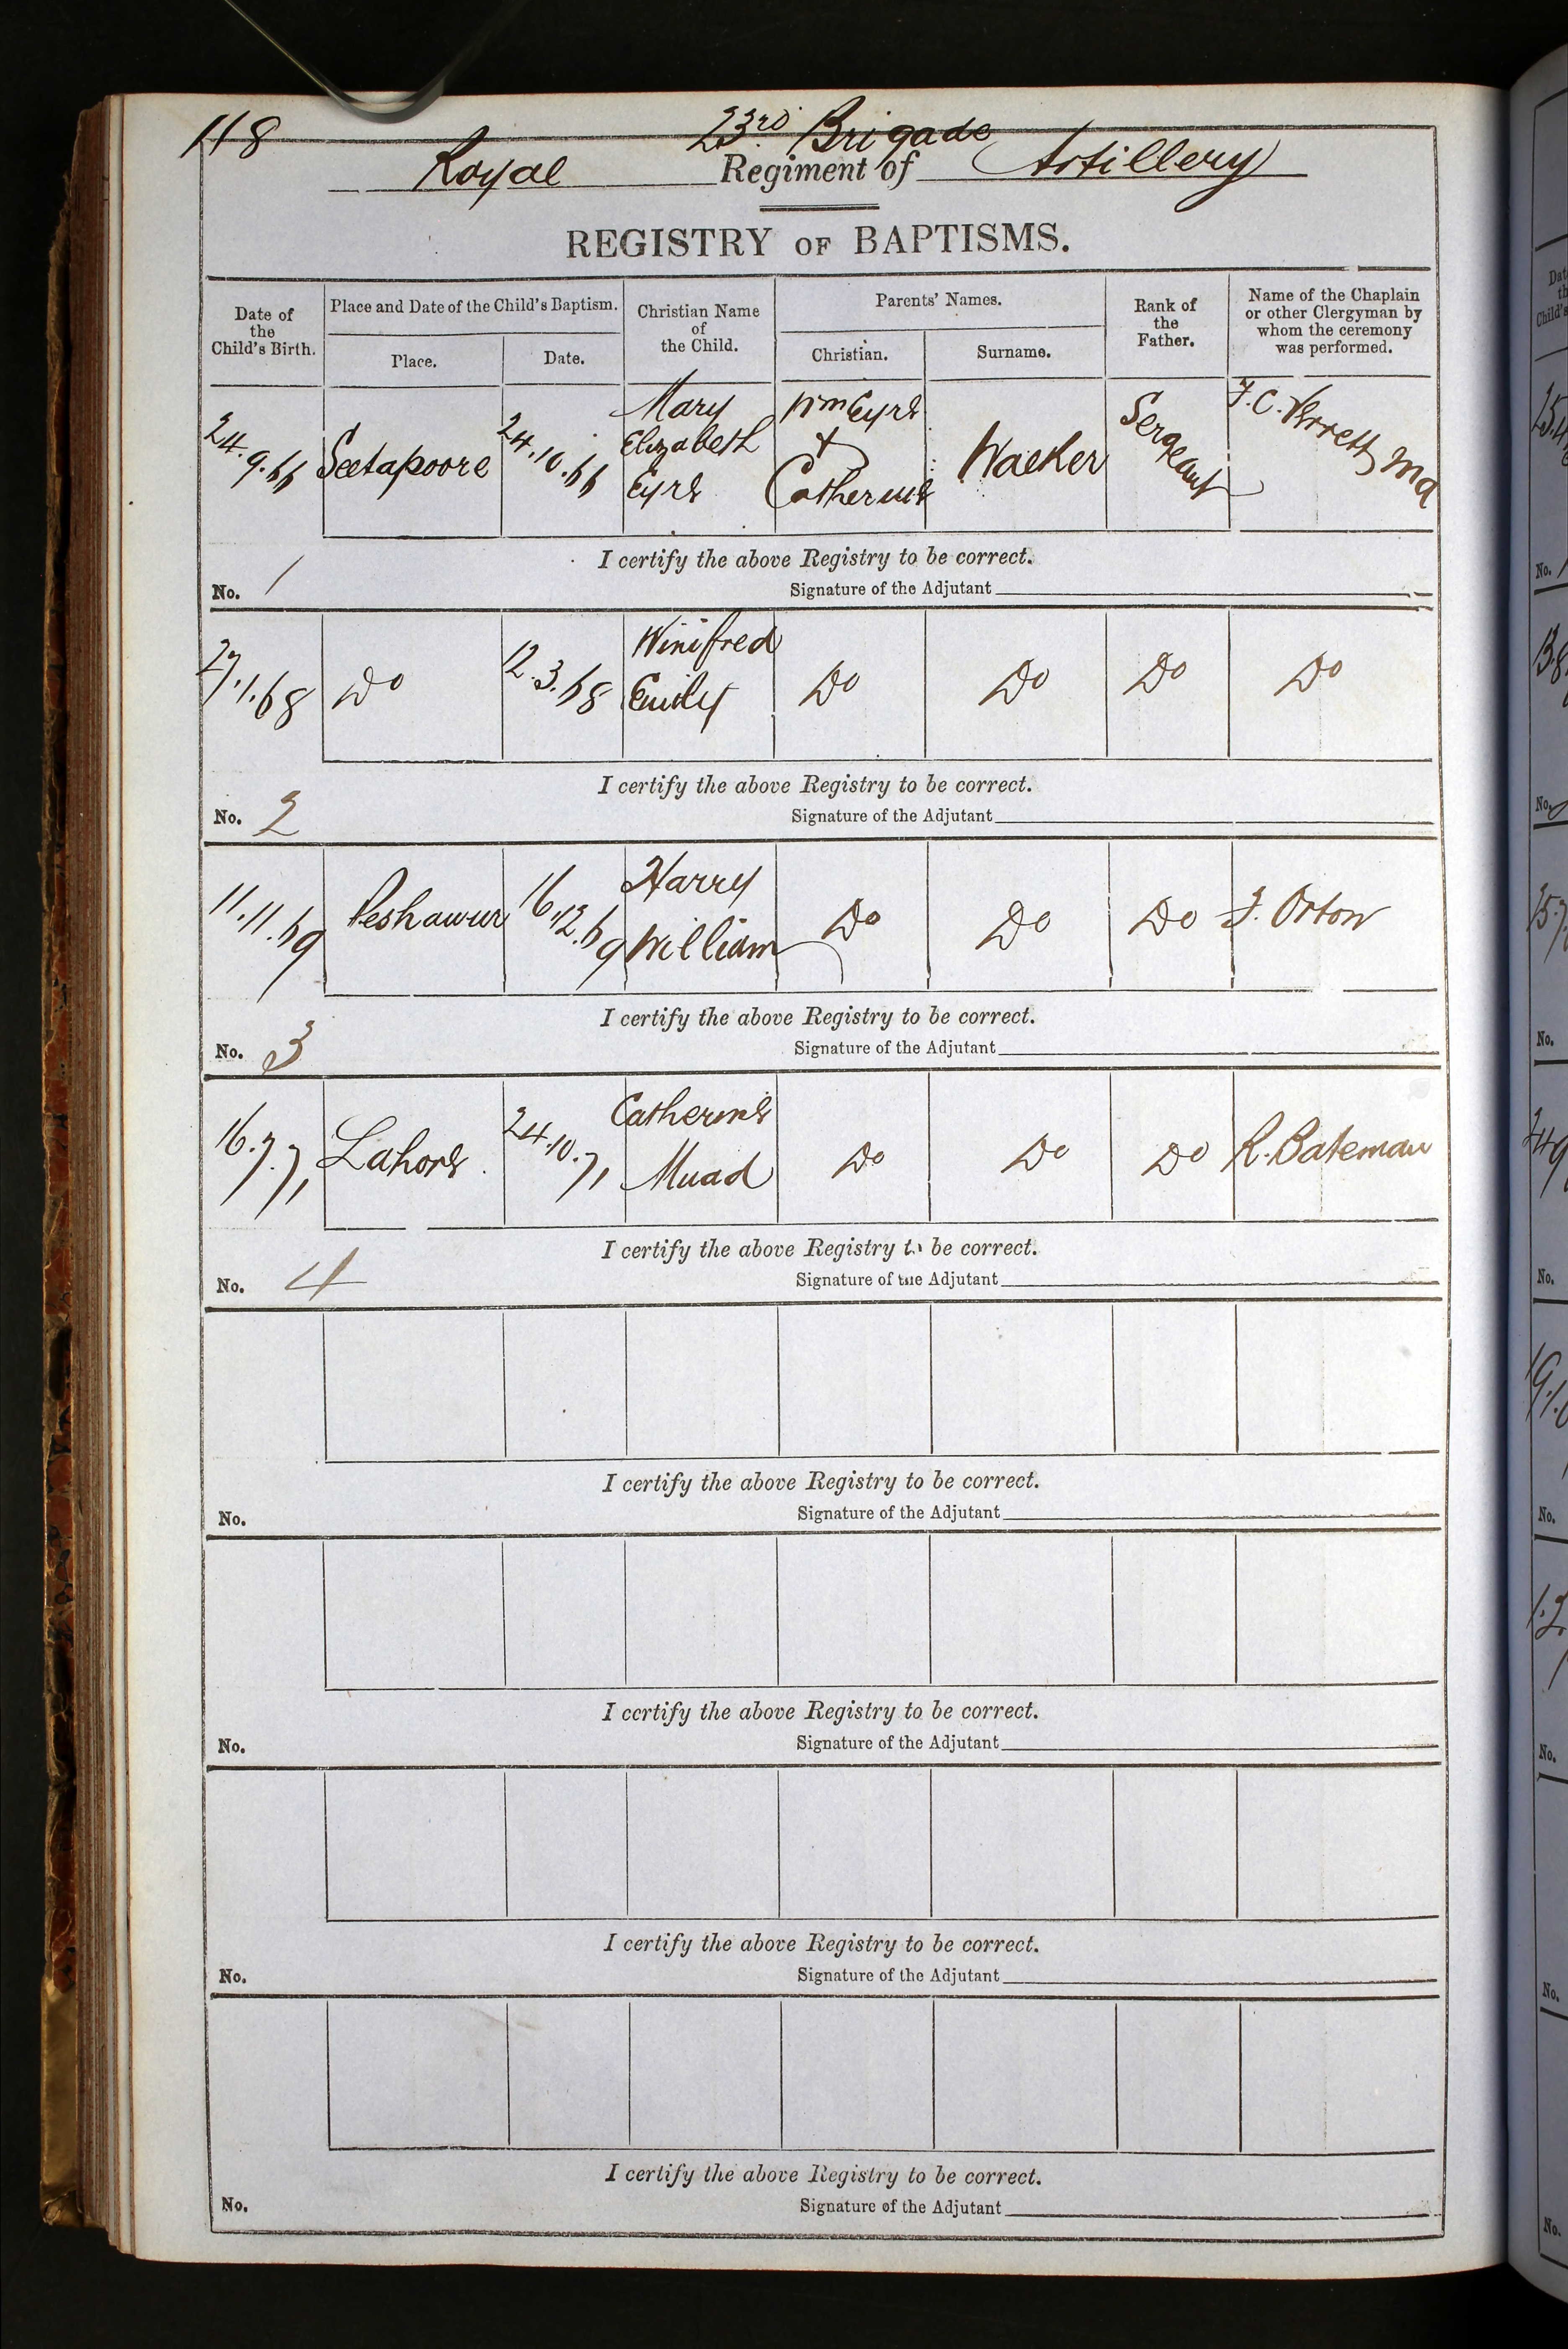 118
23rd Brigade
Royal Regiment of Artillery
REGISTRY OF BAPTISMS.
Date of the Child's Birth.
Place and Date of the Child's Baptism.
Place.
Date.
Christian Name of the Child.
Parents' Names.
Christian.
Surname.
Rank of the Father.
Name of the Chaplain or other Clergyman by whom the ceremony was performed.
24.9.66 Seetapoore 24.10.66 Mary Elizabeth Eyre Wm Eyre + Catherine Walker Sergeant F. C.
I certify the above Registry to be correct.
No. 1 Signature of the Adjutant
27.1.68 Do 12.3.68 Winifred Emily Do Do Do Do
I certify the above Registry to be correct.
No. 2 Signature of the Adjutant
11.11.69 Peshawur 16.12.69 Harry William Do Do Do J. Orton
I certify the above Registry to be correct.
No. 3 Signature of the Adjutant
16.7.71 Lahore 24.10.71 Catherine Muad Do Do Do R. Bateman
I certify the above Registry to be correct.
No. 4 Signature of the Adjutant
I certify the above Registry to be correct.
No. Signature of the Adjutant
I certify the above Registry to be correct.
No. Signature of the Adjutant
I certify the above Registry to be correct.
No. Signature of the Adjutant
I certify the above Registry to be correct.
No. Signature of the Adjutant